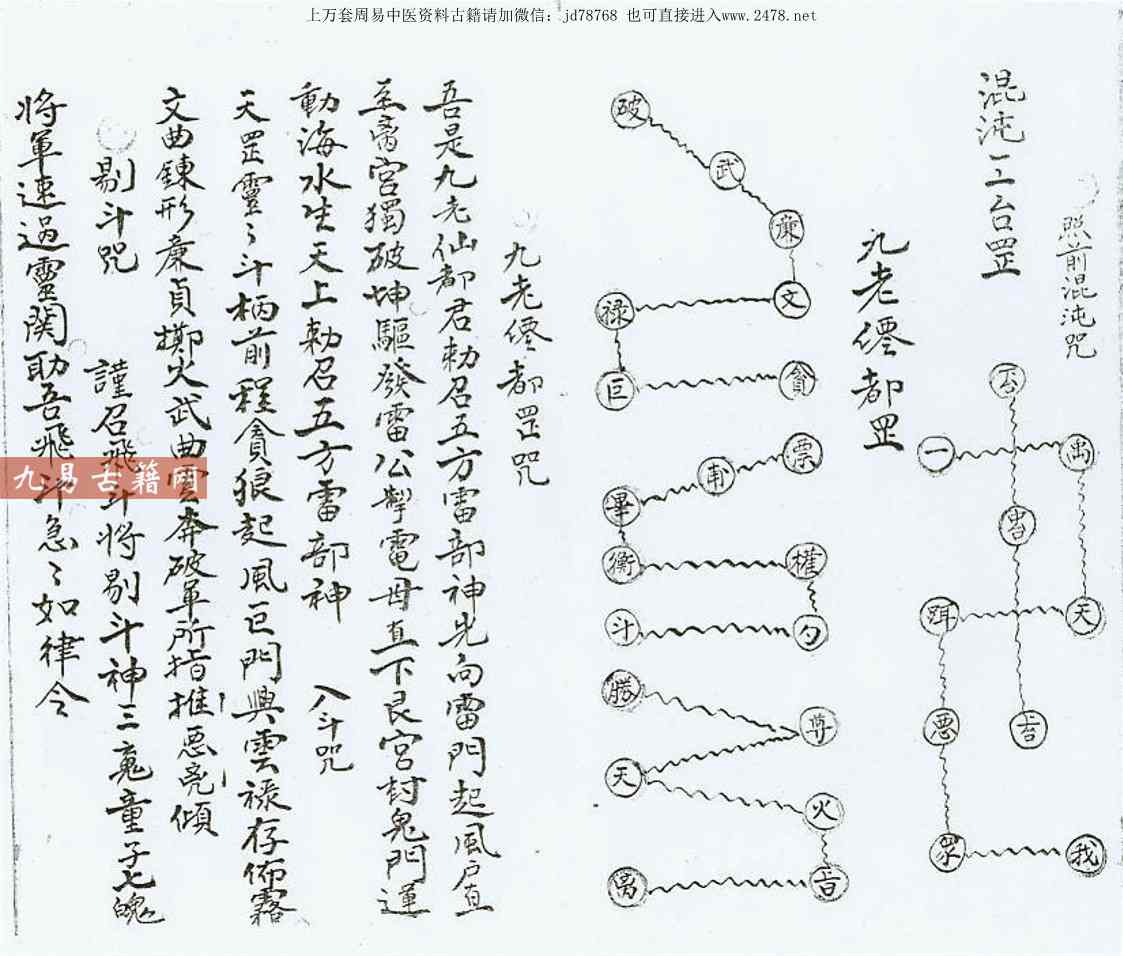 上万套周易中医资料古籍请加微信：jd78768 也可直接进入www.2478.net
混沌三台罡
照前混沌咒
一 禹
天
吉
惡
我
九老僊都罡
破
武
廉
文
禄
巨 貪
漂
甫
畢
衡 權
斗 勺
勝
尊
天
火
离
九老僊都罡咒
吾是九老仙都君勅召五方雷部神先向雷門起風戶直
至离宮獨破坤驅發雷公掣電母直下艮宮封鬼門運
動海水生天上勅召五方雷部神 入斗咒
天罡靈〻斗柄前程貪狼起風巨門興雲禄存佈霧
文曲鍊形廉貞擲火武曲雲奔破軍所指推惡亮傾
剔斗咒 謹召飛斗將剔斗神三魂童子七魄
將軍速過靈関助吾飛斗急〻如律令
九易古籍网